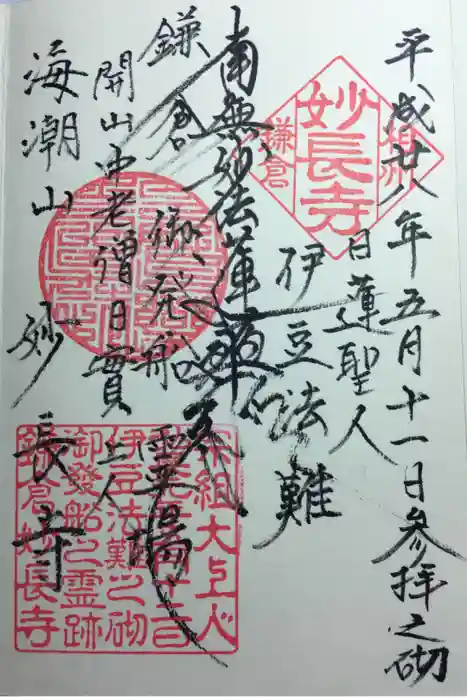 平成廿八年五月十一日参拝之砌
日蓮聖人
伊豆法難
南無妙法蓮華経
御発船
霊場
鎌倉
開山中老僧日實上人
海潮山 妙長寺
相州
妙長寺
鎌倉
伊豆法難之砌
御發船之霊跡
鎌倉妙長寺